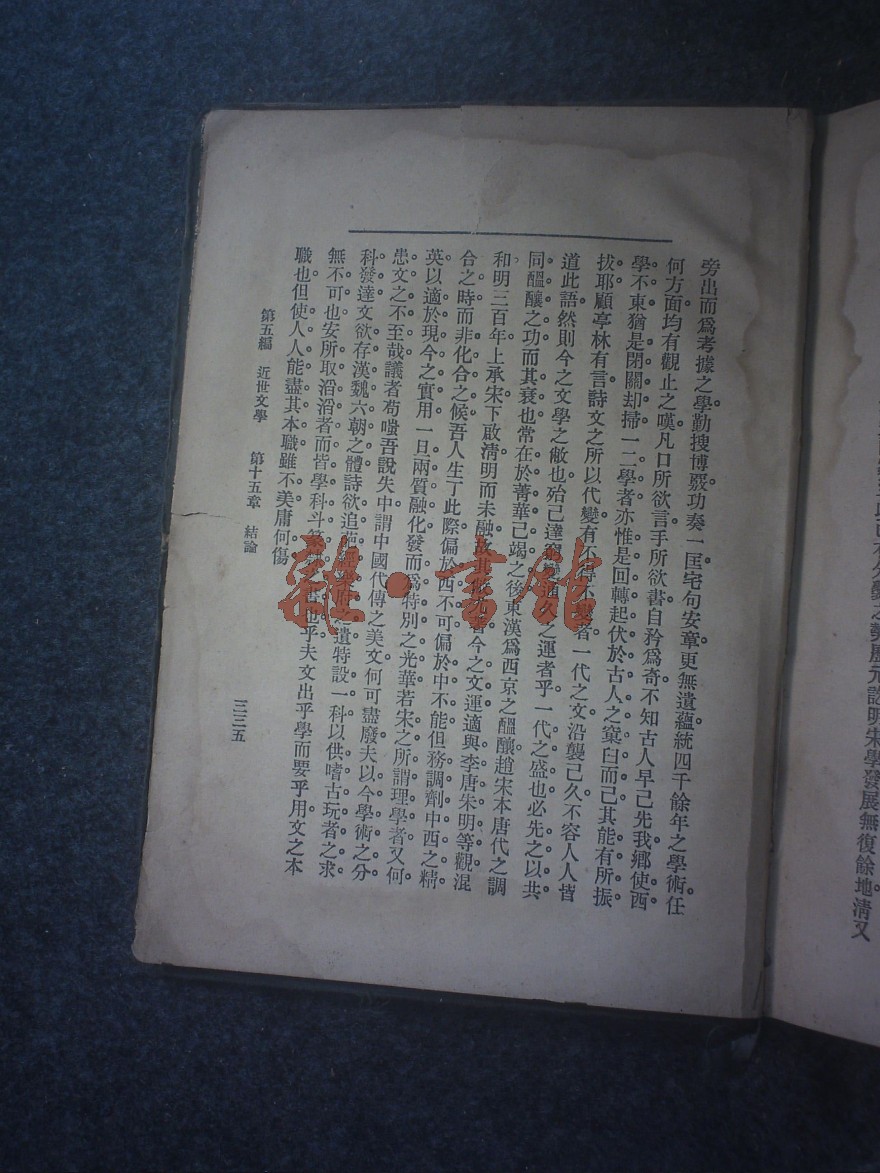 清又
旁出而爲考據之學勤搜博發功奏一匡宅句安章更無遺蘊統四千餘年之學術任
何方面均有觀止之嘆凡口所欲言手所欲書自矜爲奇不知古人早已先我鄉使西
學不東猶是閉關却掃一二學者亦惟是回轉起伏於古人之窠臼而已其能有所振
拔耶顧亭林有言詩文之所以代變有不得不變者一代之文沿襲已久不容人人皆
道此語然則今之文學之敝也殆已達窮變通久之運者乎一代之盛也必先之以共
同醞釀之功而其衰也常在於菁華已竭之後東漢爲西京之醞釀趙宋本唐代之調
和明三百年上承宋下啟清明而未融故其 今之文運適與李唐朱明等觀混
合之時而非化合之候吾人生丁此際偏於西不可偏於中不能但務調劑中西之精
英以適於現今之實用一旦兩質融化發而爲特別之光華若宋之所謂理學者又何
患文之不至哉議者苟嗤吾說失中謂中國代傳之美文何可盡廢夫以今學術之分
科發達文欲存漢魏六朝之體詩欲追 之遺特設一科以供嗜古玩者之求
無不可也安所取滔滔者而皆學科斗 書也乎夫文出乎學而要乎用文之本
職也但使人人能盡其本職雖不美庸何傷
第五編 近世文學 第十五章 結論 三三五
雜·書館